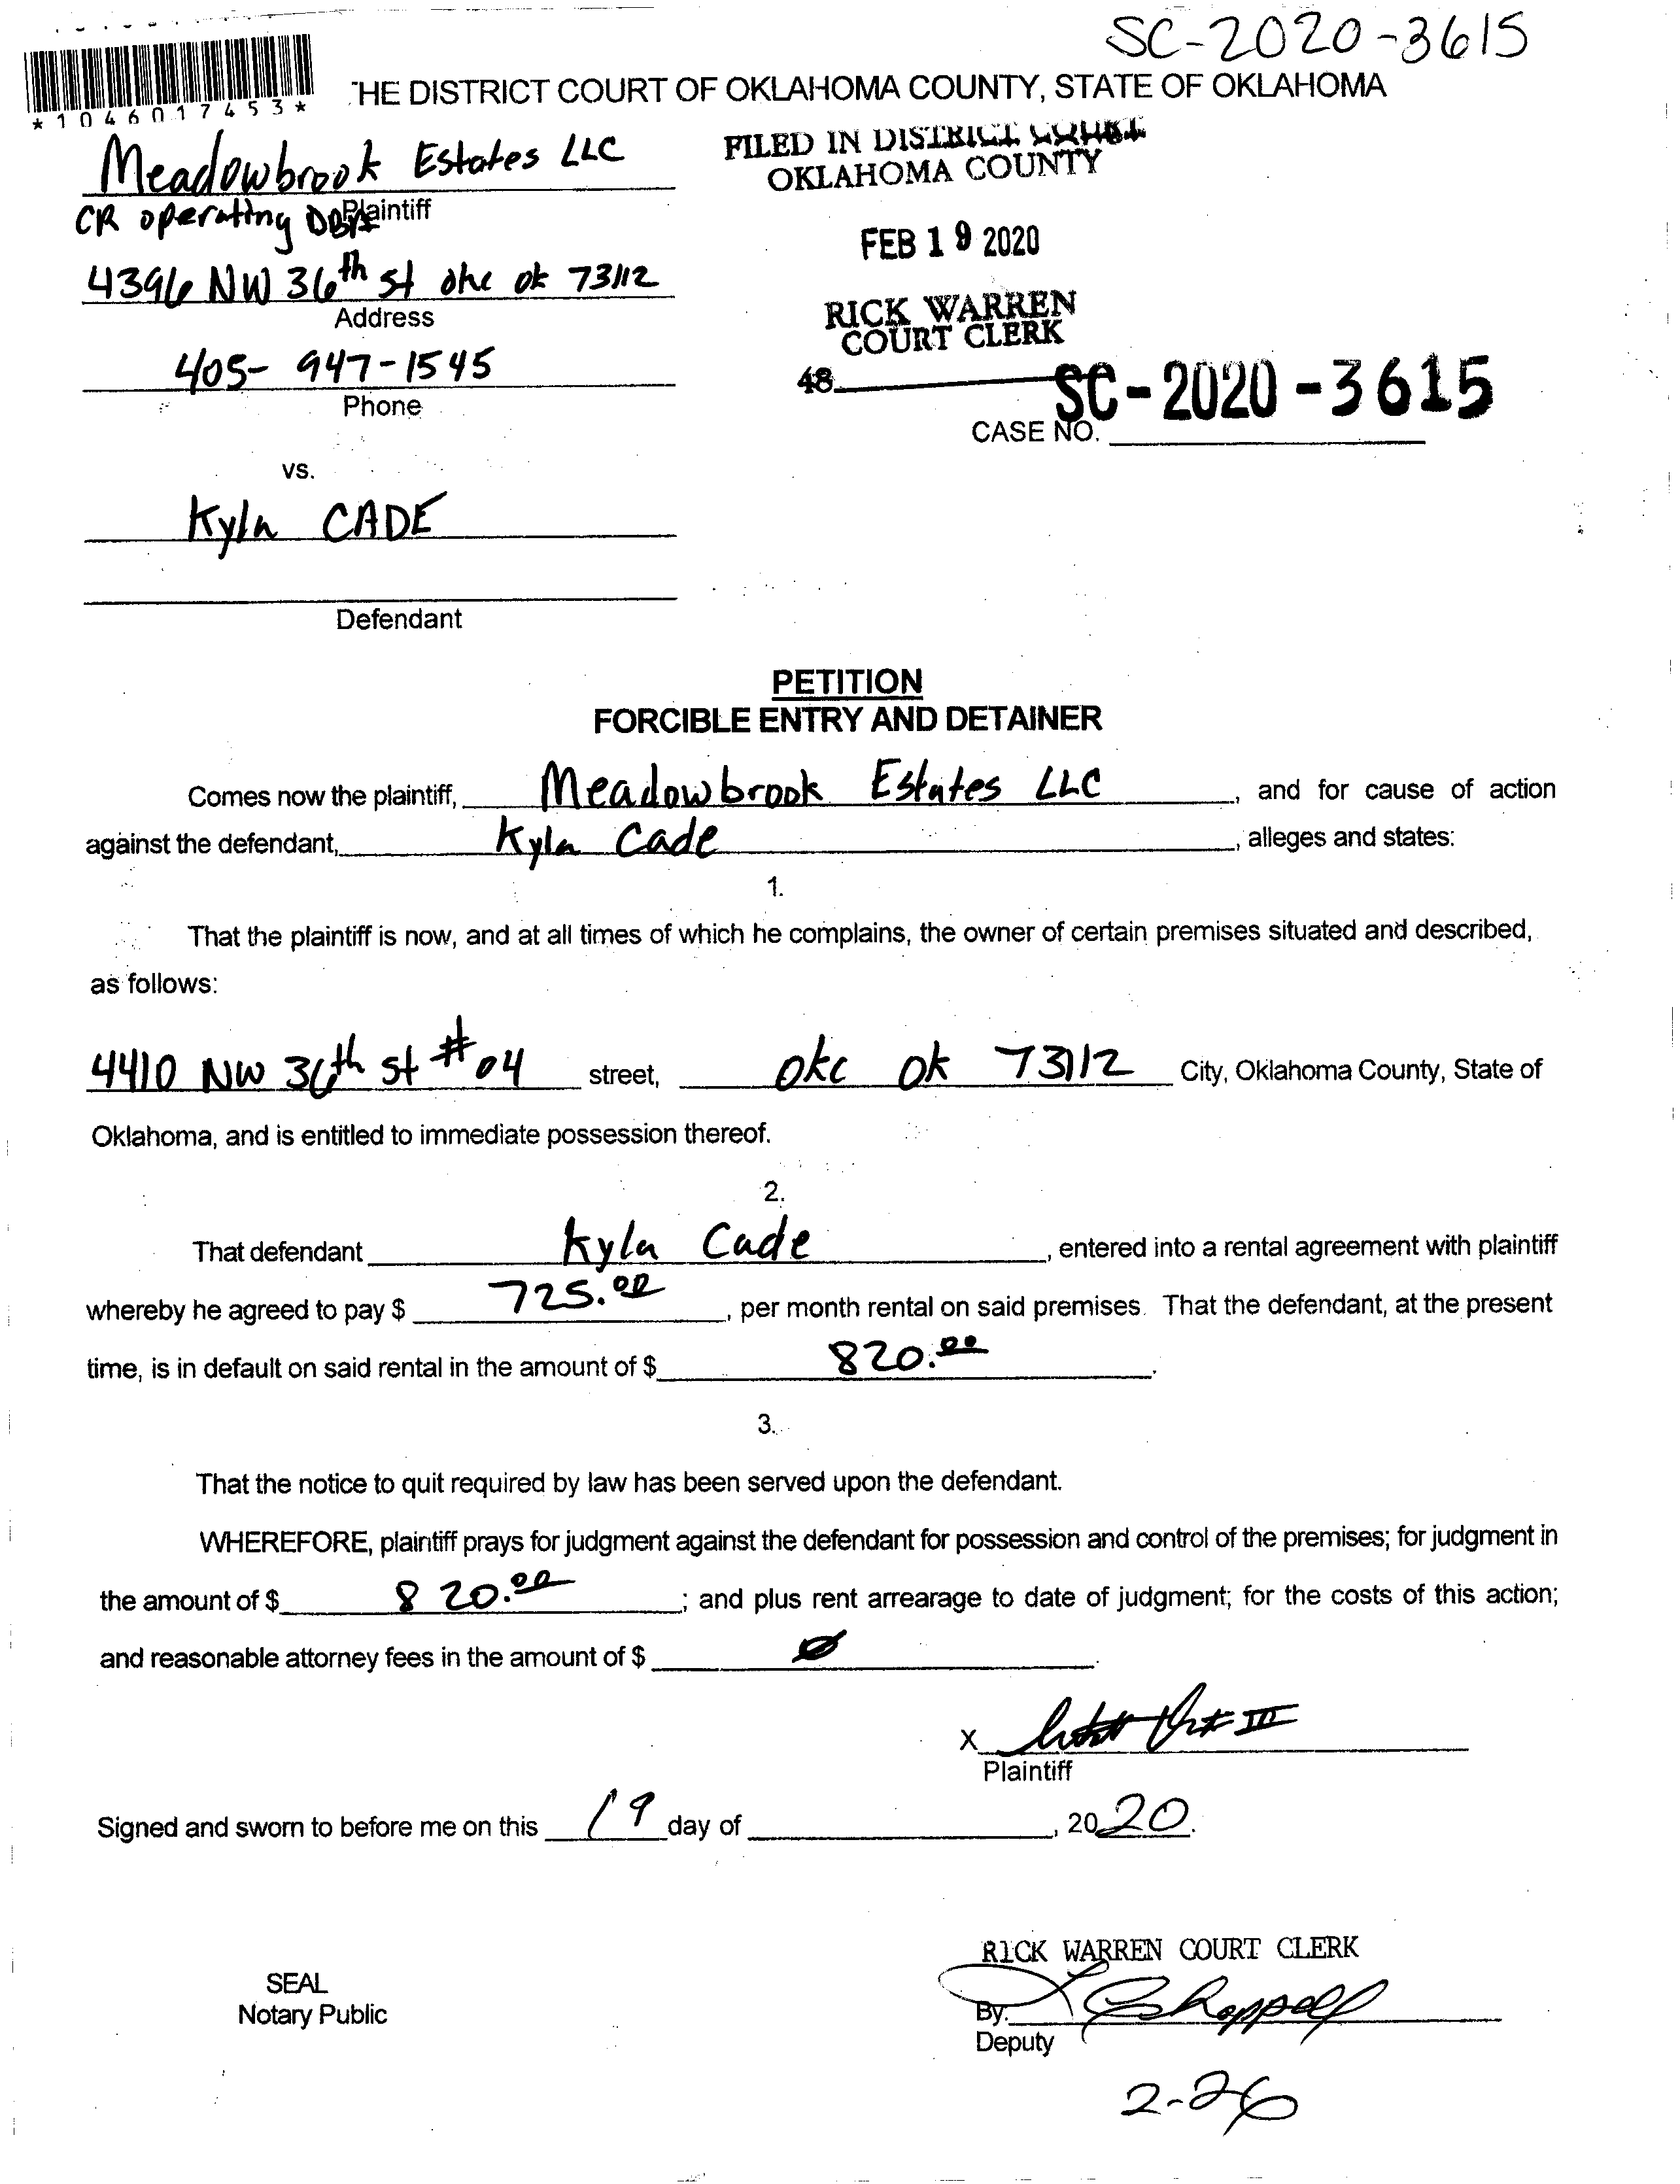 SC-2020-3615
*1046017453*
THE DISTRICT COURT OF OKLAHOMA COUNTY, STATE OF OKLAHOMA
Meadowbrook Estates LLC
CR operating DBA
Plaintiff
FILED IN DISTRICT COURT
OKLAHOMA COUNTY
FEB 19 2020
RICK WARREN
COURT CLERK
48
4396 NW 36th st okc ok 73112
Address
405-947-1545
Phone
SC-2020-3615
CASE NO.
vs.
Kyla CADE
Defendant
PETITION
FORCIBLE ENTRY AND DETAINER
Comes now the plaintiff, Meadowbrook Estates LLC, and for cause of action
against the defendant, Kyla Cade, alleges and states:
1.
That the plaintiff is now, and at all times of which he complains, the owner of certain premises situated and described,
as follows:
4410 NW 36th st #04 street, okc ok 73112 City, Oklahoma County, State of
Oklahoma, and is entitled to immediate possession thereof.
2.
That defendant Kyla Cade, entered into a rental agreement with plaintiff
whereby he agreed to pay $ 725.00, per month rental on said premises. That the defendant, at the present
time, is in default on said rental in the amount of $ 820.00.
3.
That the notice to quit required by law has been served upon the defendant.
WHEREFORE, plaintiff prays for judgment against the defendant for possession and control of the premises; for judgment in
the amount of $ 820.00; and plus rent arrearage to date of judgment; for the costs of this action;
and reasonable attorney fees in the amount of $ Ø.
X III
Plaintiff
Signed and sworn to before me on this 19 day of , 2020.
RICK WARREN COURT CLERK
SEAL
Notary Public
By:
Deputy
2-26